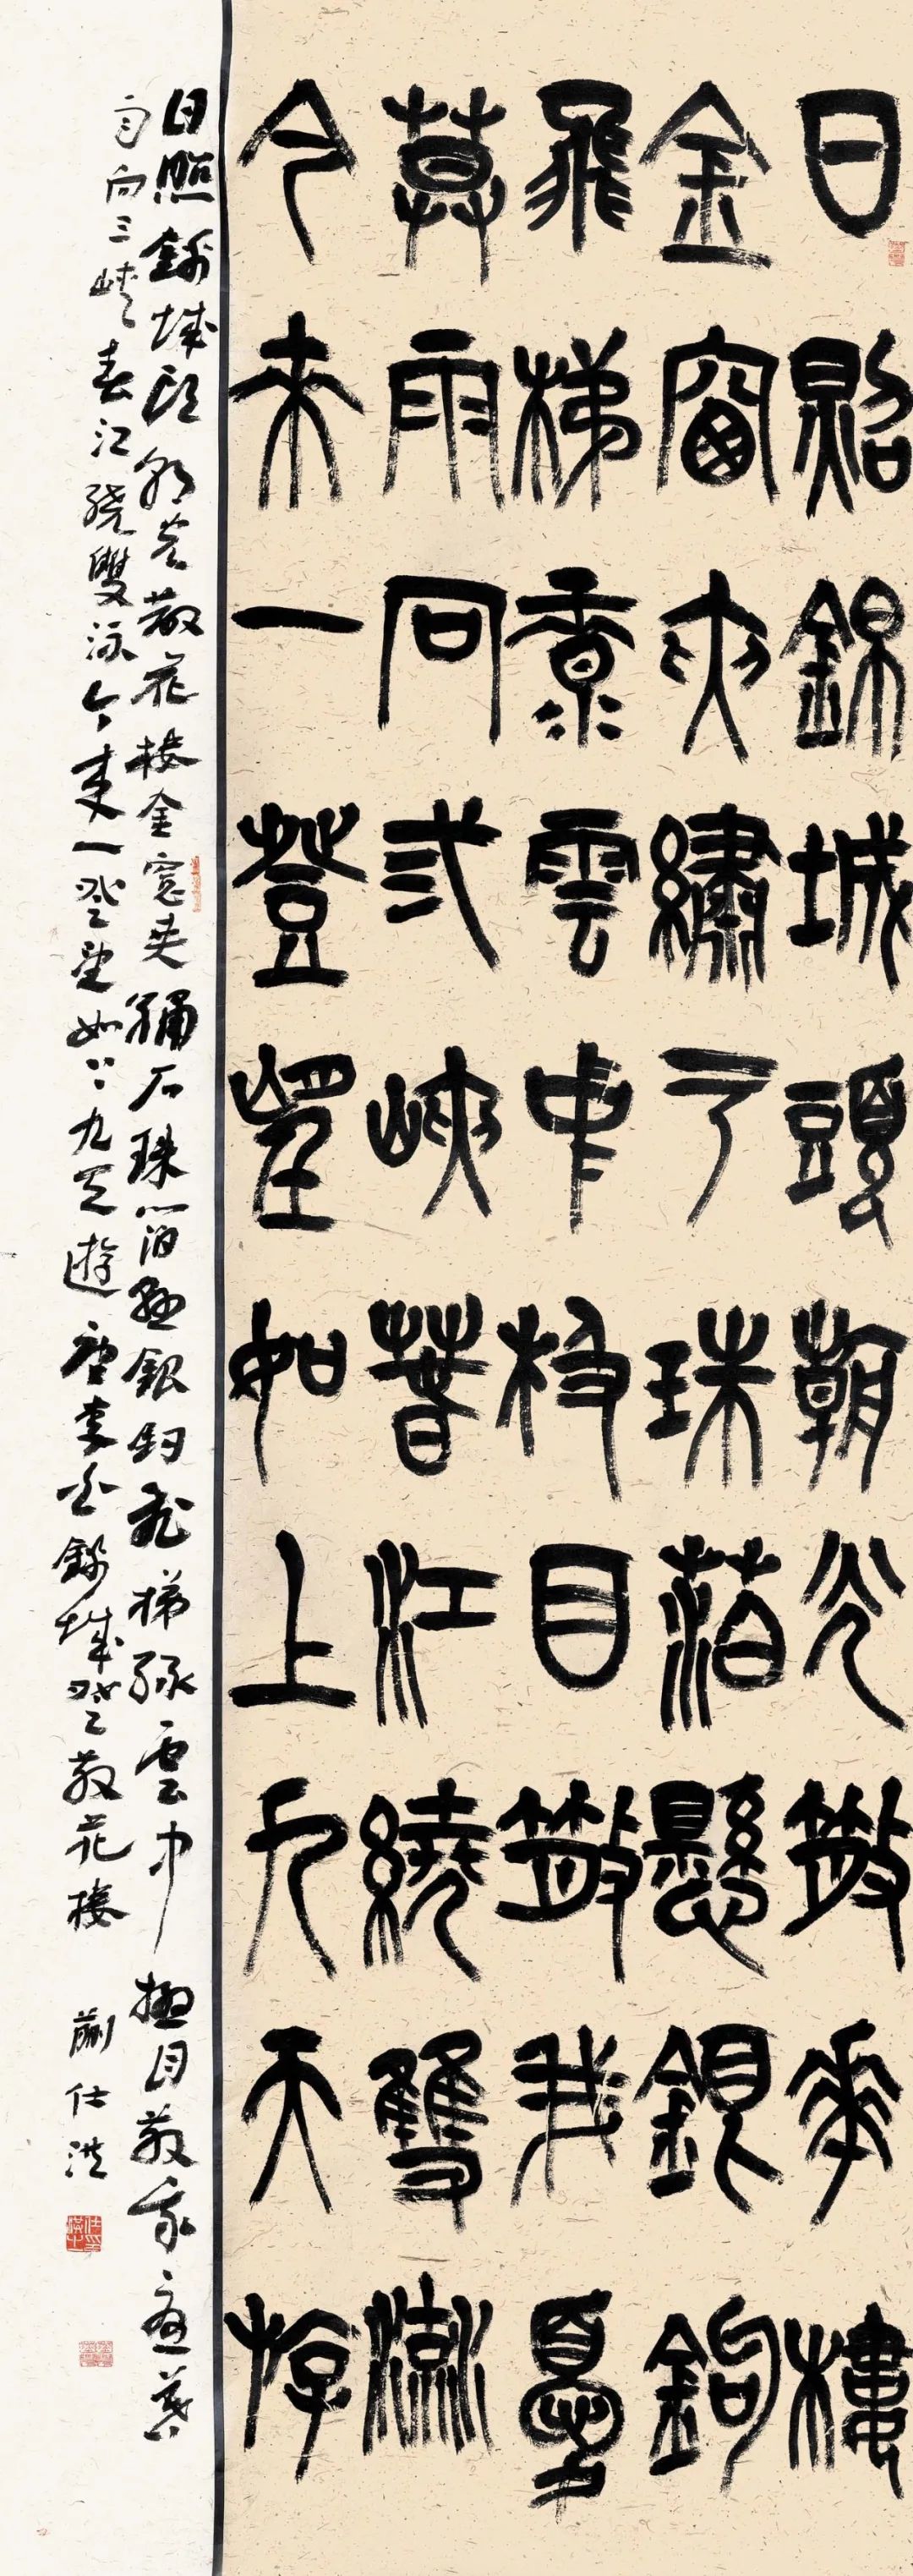 日照錦城頭朝光散華樓
金窗夾繡戶珠箔懸銀鉤
飛梯綠雲中极目散我憂
莫雨向弎峽春江繞雙流
今来一登望如上九天游
日照錦城頭朝光散花樓金窗夾繡戶珠箔懸銀鉤飛梯綠雲中極目散我憂暮
雨向三峽春江繞雙流今來一登望如上九天遊唐李白錦城登散花樓 蒯仕洪